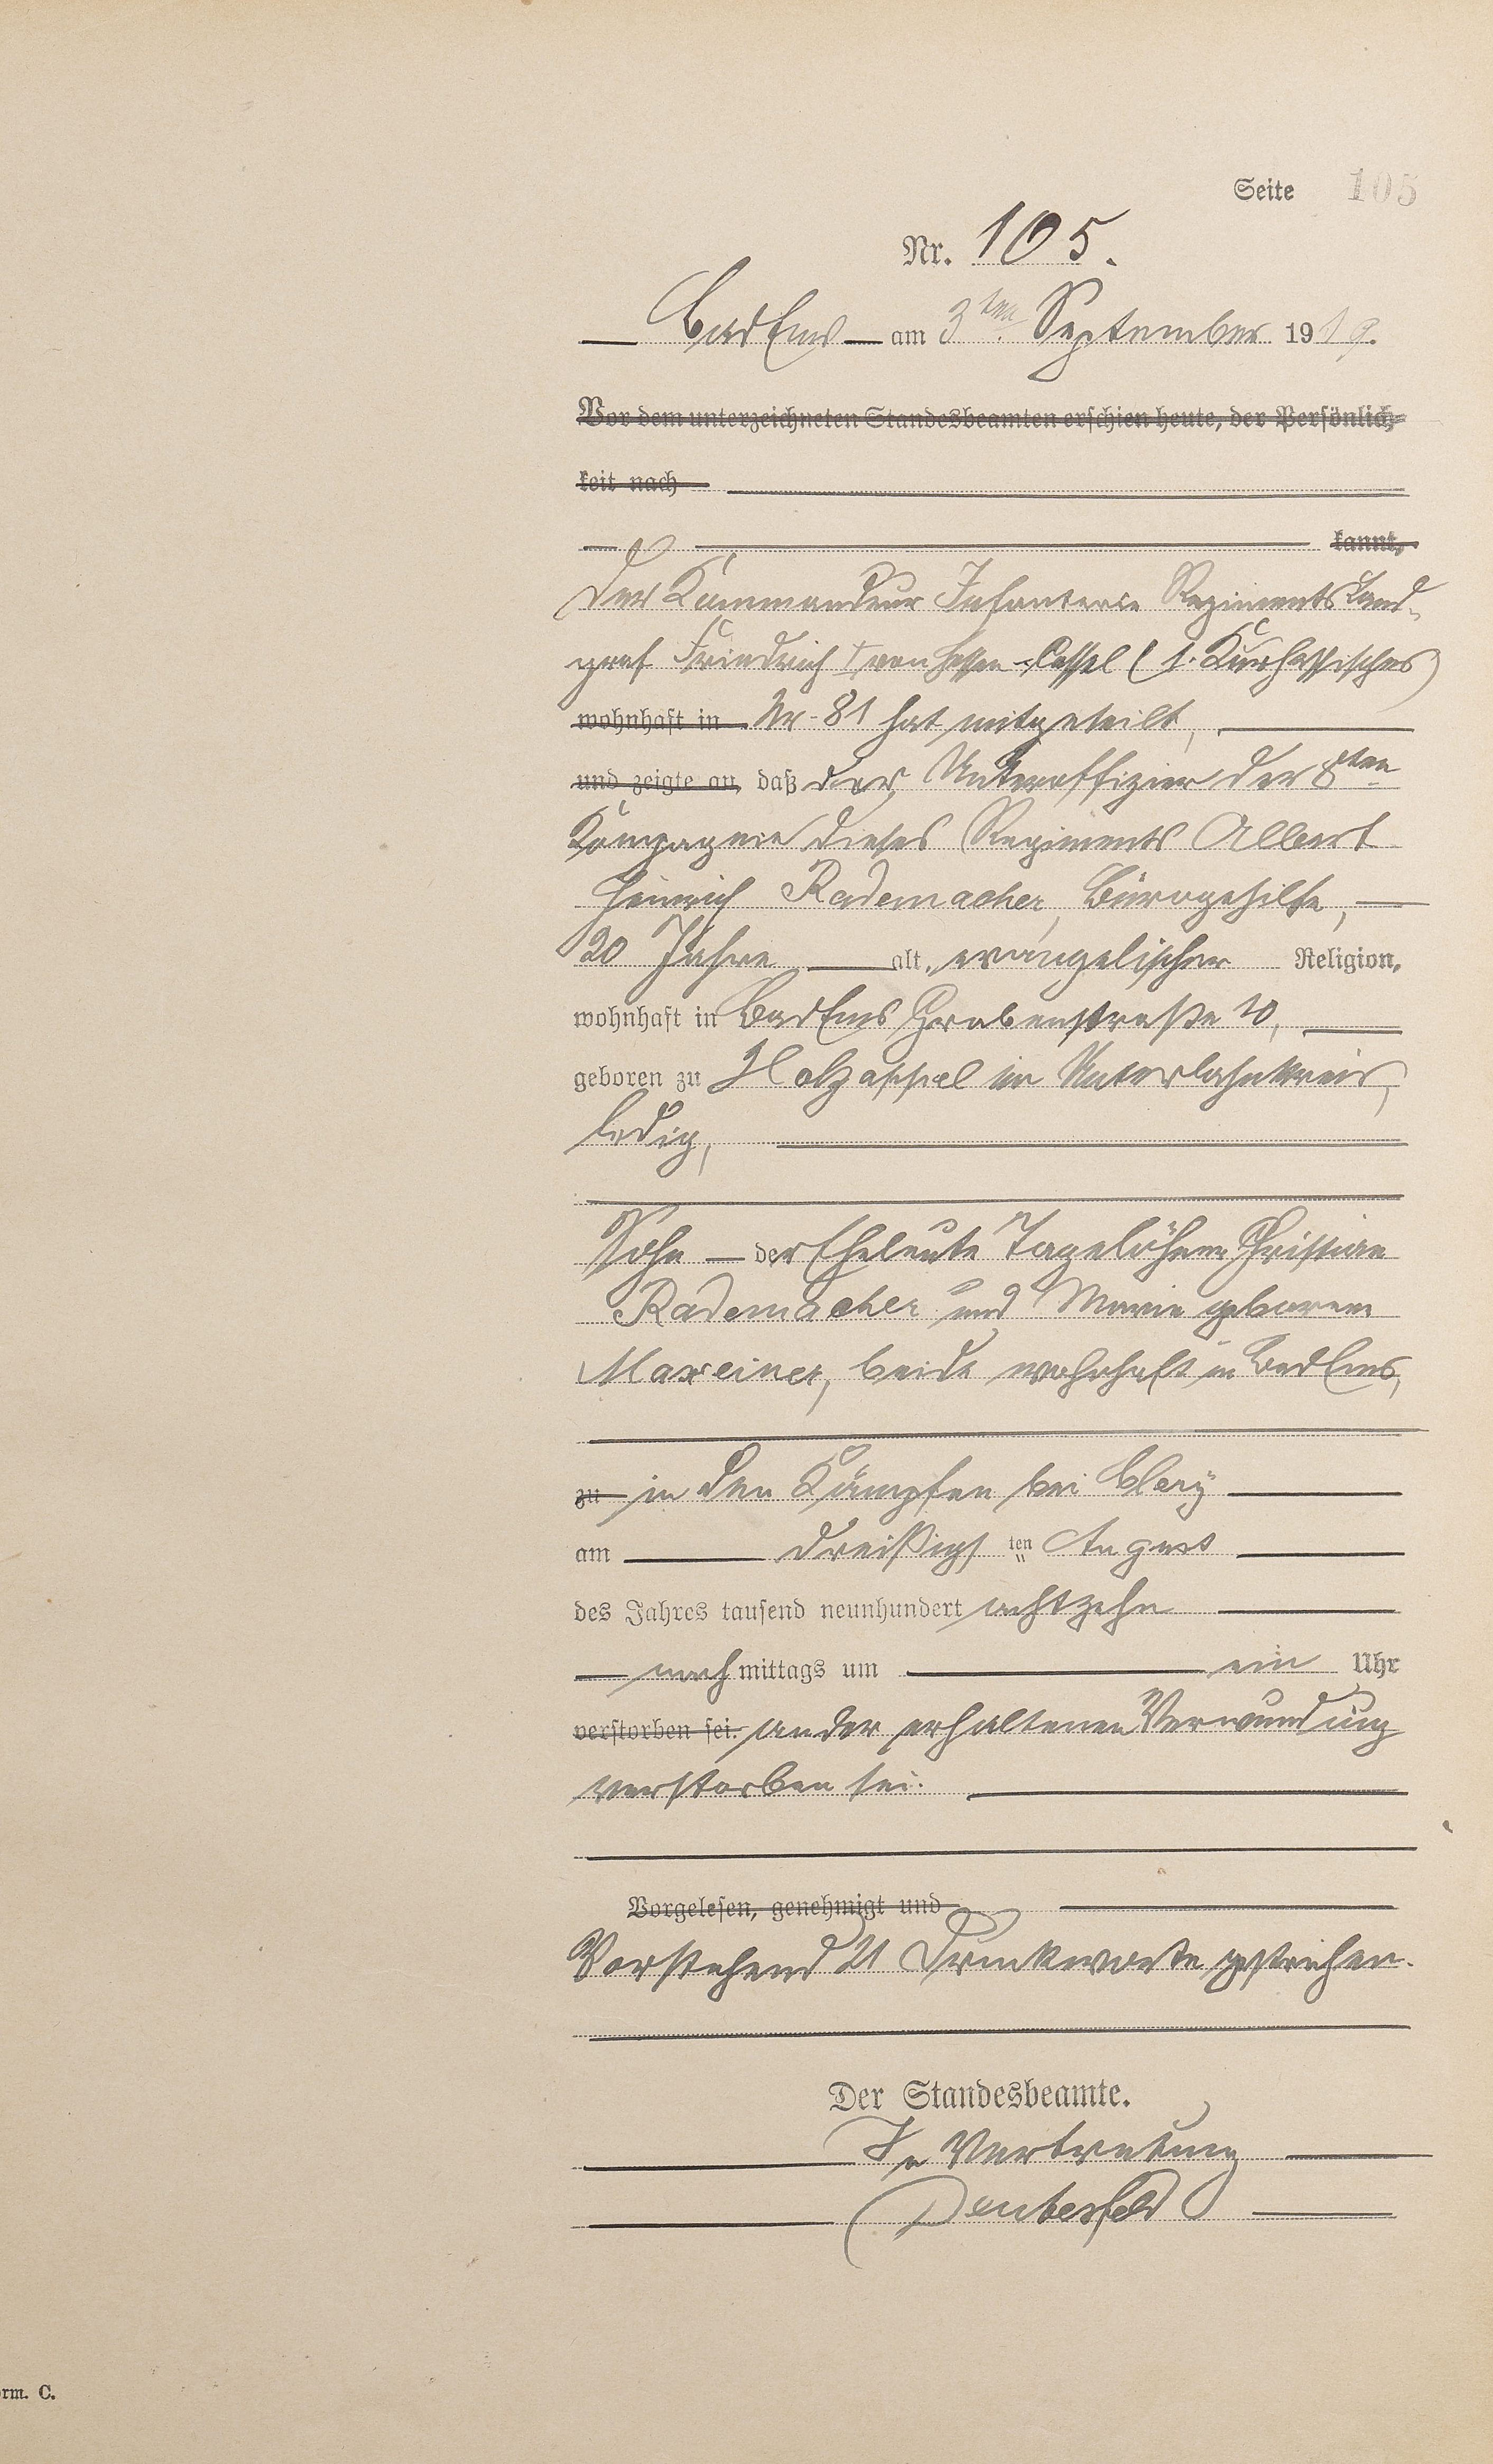 Seite 105
Nr. 105.
Bad Ems am 3ten September 1919.
Vor dem unterzeichneten Standesbeamten erschien heute, der Persönlich-
keit nach
kannt,
Der Kommandeur Infanterie Regiments Land-
graf Friedrich I von Hessen-Cassel (1. Kurhessisches)
wohnhaft in Nr. 81 hat mitgeteilt,
und zeigte an, daß der Unteroffizier der 8ten
Kompagnie dieses Regiments Albert
Heinrich Rademacher, Bürogehilfe,
20 Jahre alt, evangelischer Religion,
wohnhaft in Bad Ems Grabenstraße 20,
geboren zu Holzappel im Unterlahnkreis,
ledig,
Sohn der Eheleute Tagelöhner Christian
Rademacher und Marie geborene
Maxeiner, beide wohnhaft in Bad Ems,
zu in den Kämpfen bei Clery
am dreißigsten August
des Jahres tausend neunhundert achtzehn
nachmittags um ein Uhr
verstorben sei. an der erhaltenen Verwundung
verstorben sei.
Vorgelesen, genehmigt und
Vorstehend 21 Druckworte gestrichen.
Der Standesbeamte.
In Vertretung
orm. C.